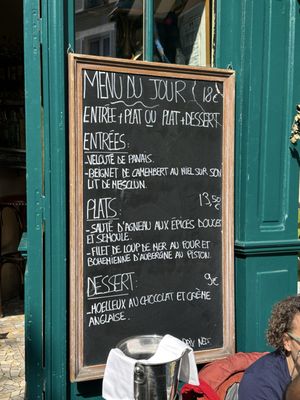 MENU DU JOUR ! 18€
ENTRÉE + PLAT OU PLAT + DESSERT
ENTRÉES :
- VELOUTÉ DE PANAIS.
- BEIGNET DE CAMEMBERT AU MIEL SUR SON
LIT DE MESCLUN.
PLATS : 13,50€
- SAUTÉ D'AGNEAU AUX ÉPICES DOUCES
ET SEMOULE.
- FILET DE LOUP DE MER AU FOUR ET
BOHÉMIENNE D'AUBERGINE AU PISTON.
DESSERT : 9€
- MOELLEUX AU CHOCOLAT ET CRÈME
ANGLAISE.
PRIX NET.